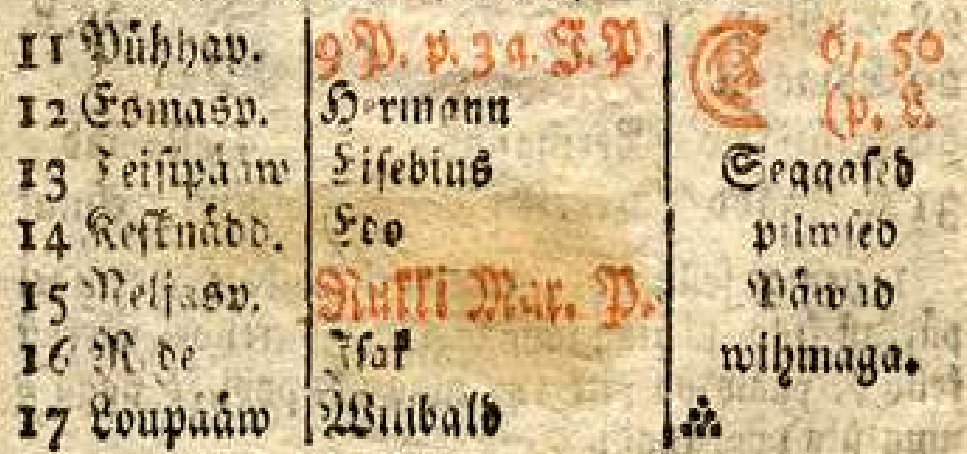 11 Pühhap. 9 P. p. 3 a. J. P. 6, 50
12 Esmasp. Hermann (p. L.
13 Teisipääw Eisebius Seggased
14 Kesknädd. Edo pilwsed
15 Neljasp. Rukki Mar. P. Päwad
16 Rede Isak wihmaga.
17 Loupääw Willibald